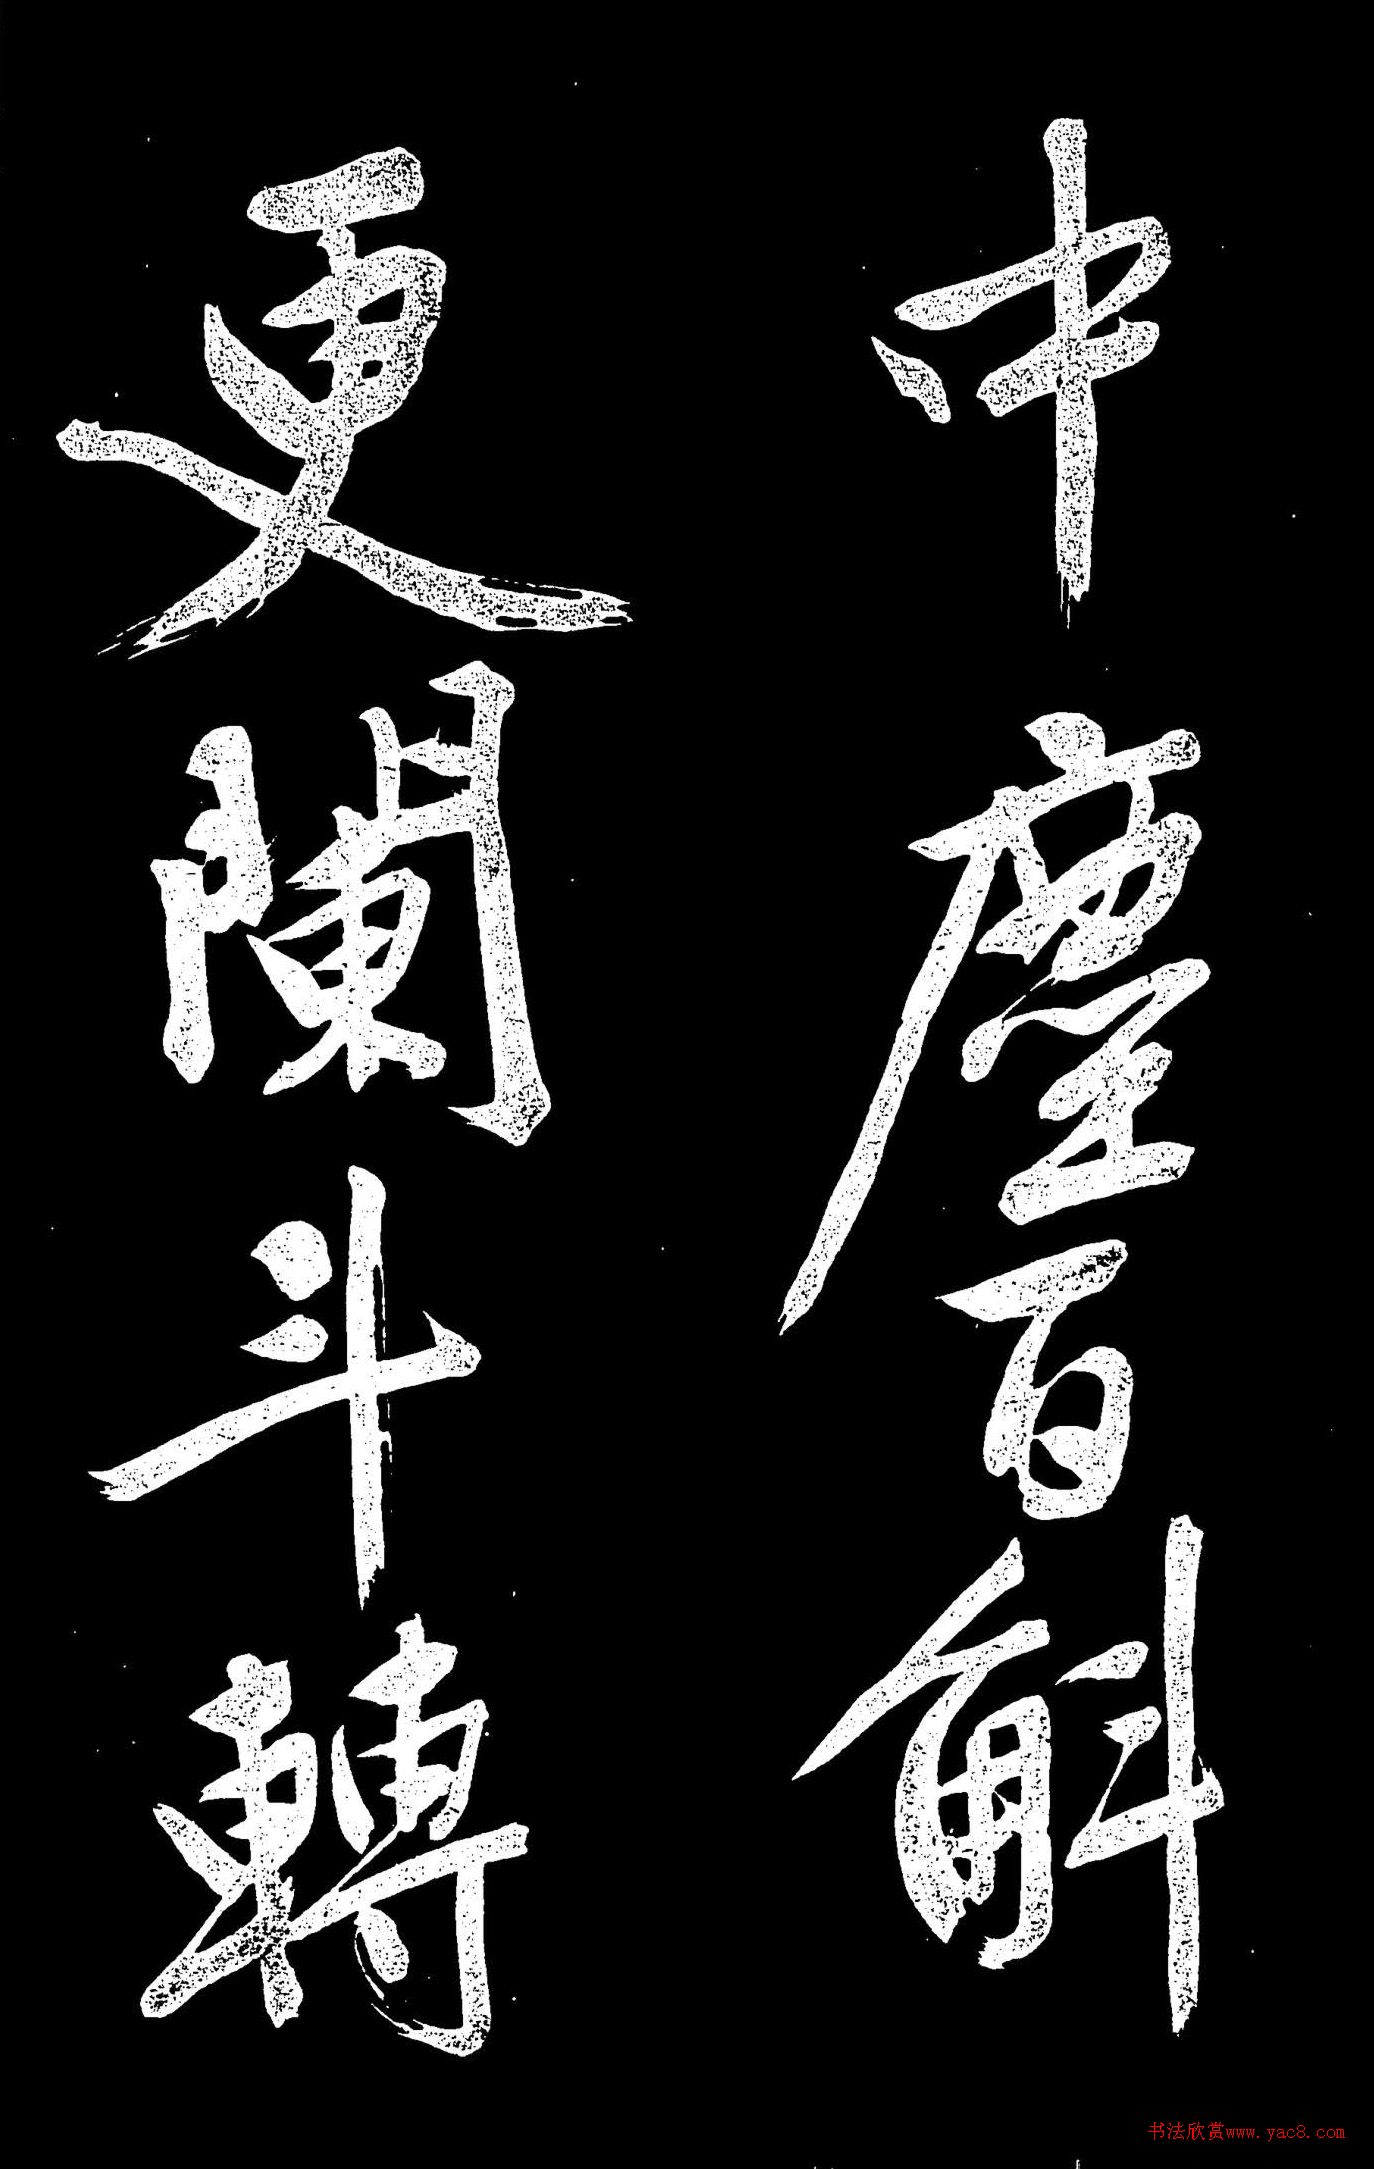 中塵百斛
更闌斗轉
书法欣赏www.yac8.com